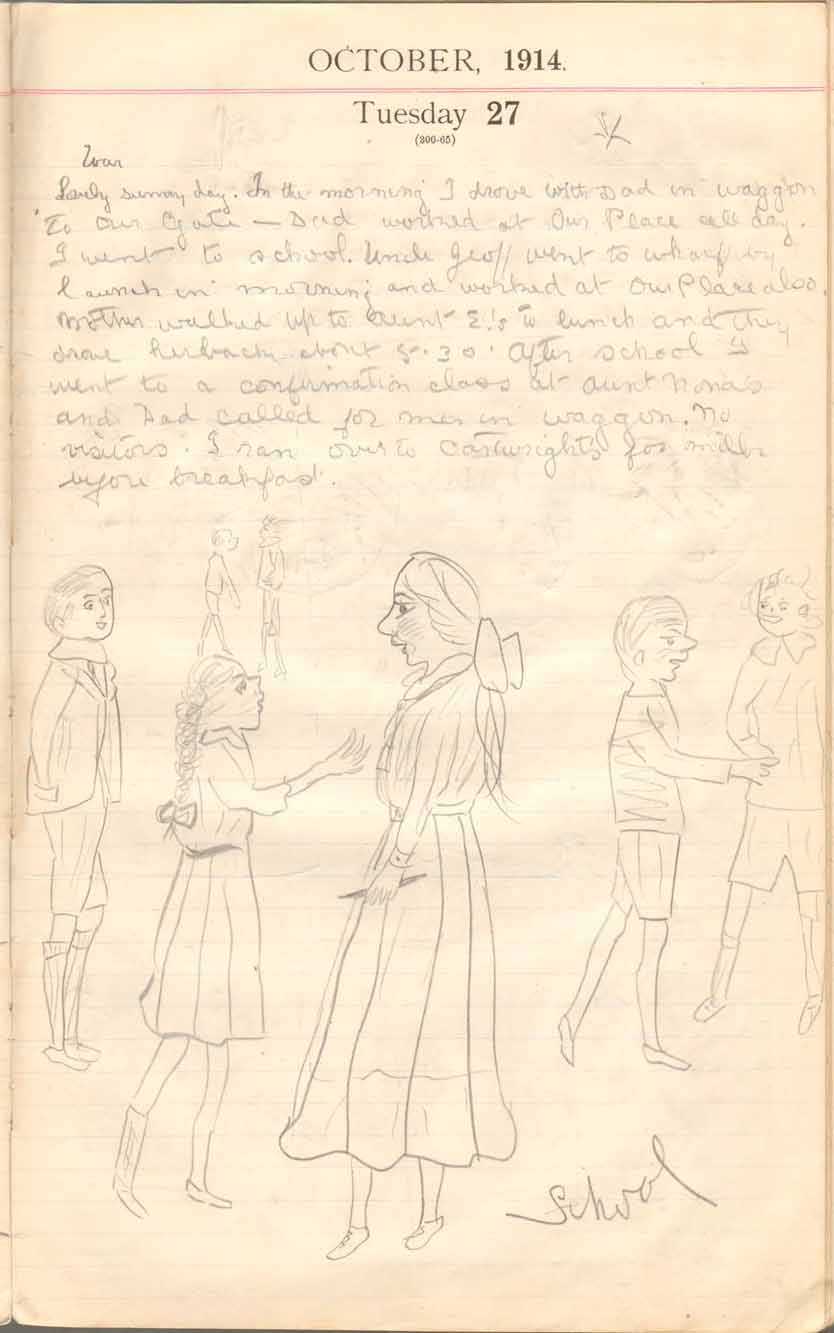 OCTOBER, 1914.
Tuesday 27
(300-65)
War
Lovely sunny day. In the morning I drove with Dad in waggon
to our Gate — Dad worked at Our Place all day.
I went to school. Uncle Geoff went to wharf by
launch in morning and worked at Our Place also.
Mother walked up to Aunt E.'s to lunch and they
drove her back about 5.30. After school I
went to a confirmation class at Aunt Nona's
and Dad called for me in waggon. No
visitors. I ran over to Cartwrights for milk
before breakfast.
School